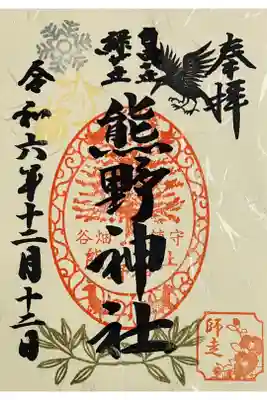 奉拝
熊野神社
谷畑
鎮守
令和六年十二月十二日
師走